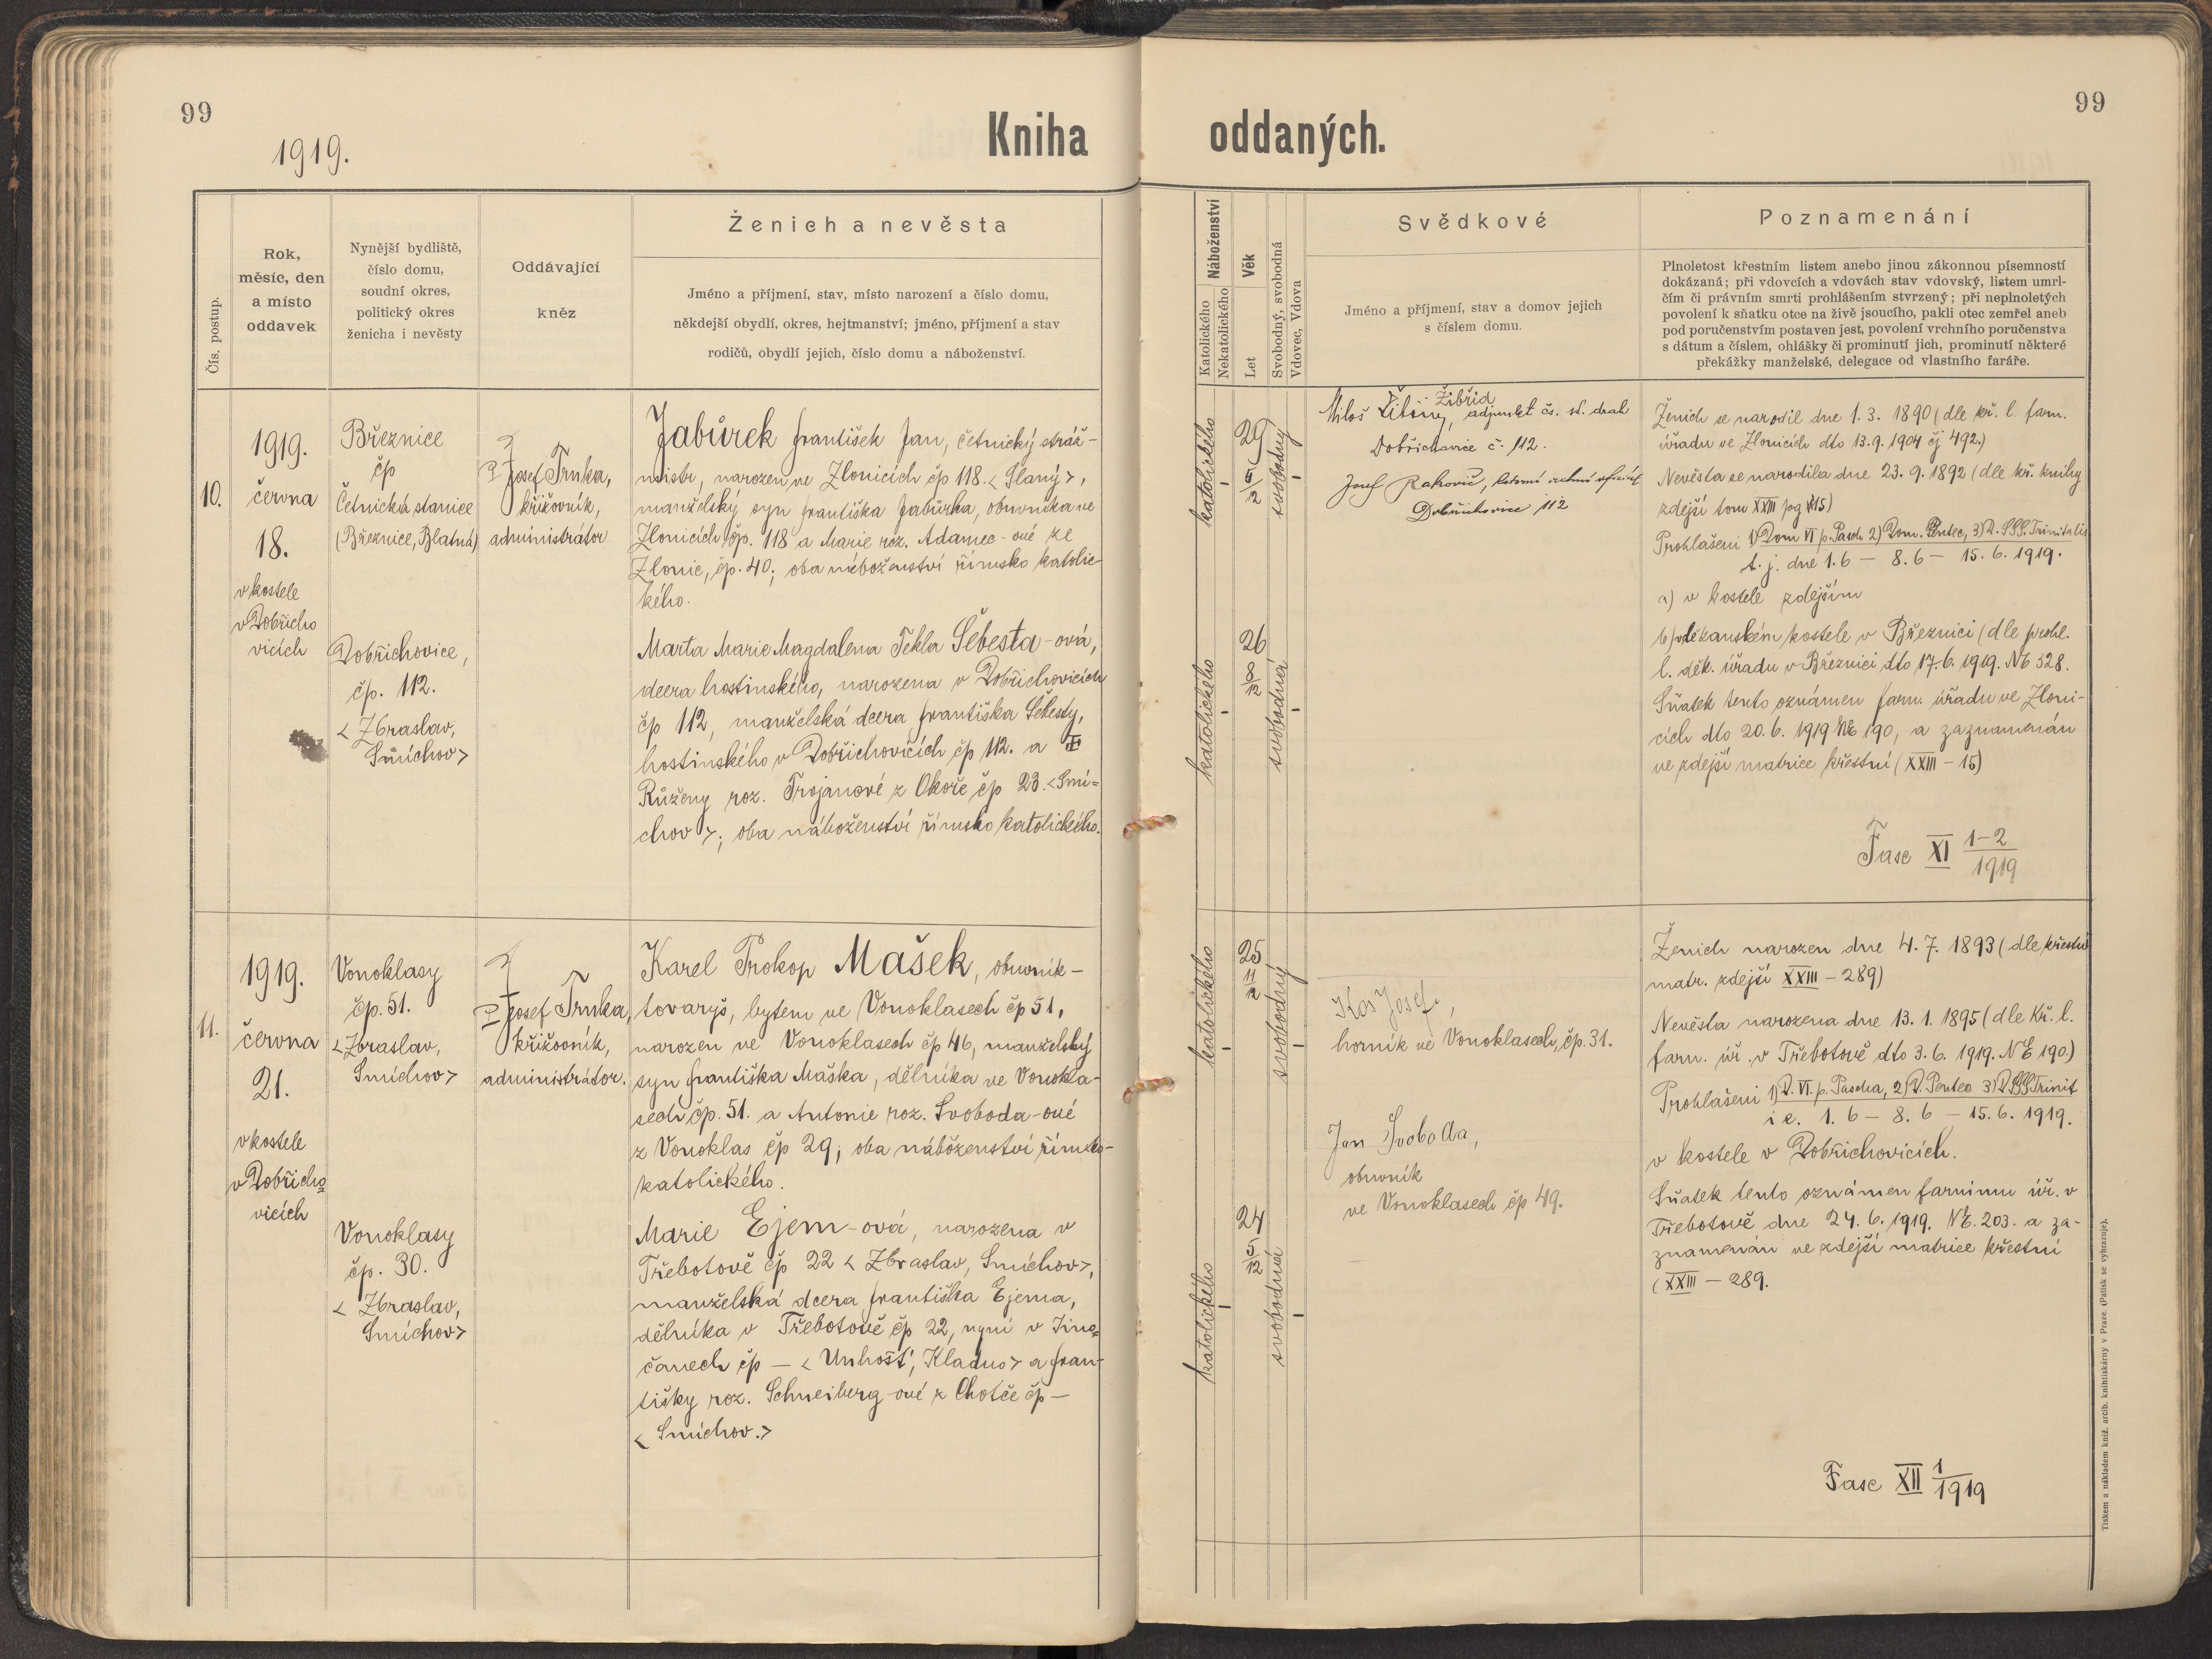 99
1919.
Kniha
oddaných.
99
Čís. postup.
Rok,
měsíc, den
a místo
oddavek
Nynější bydliště,
číslo domu,
soudní okres,
politický okres
ženicha i nevěsty
Oddávající
kněz
Ženich a nevěsta
Jméno a příjmení, stav, místo narození a číslo domu,
někdejší obydlí, okres, hejtmanství; jméno, příjmení a stav
rodičů, obydlí jejich, číslo domu a náboženství.
Náboženství
Katolického
Nekatolického
Věk
Let
Svobodný, svobodná
Vdovec, Vdova
Svědkové
Jméno a příjmení, stav a domov jejich
s číslem domu.
Poznamenání
Plnoletost křestním listem anebo jinou zákonnou písemností
dokázaná; při vdovcích a vdovách stav vdovský, listem umrl-
čím či právním smrti prohlášením stvrzený; při neplnoletých
povolení k sňatku otce na živě jsoucího, pakli otec zemřel aneb
pod poručenstvím postaven jest, povolení vrchního poručenstva
s dátum a číslem, ohlášky či prominutí jich, prominutí některé
překážky manželské, delegace od vlastního faráře.
10.
1919.
června
18.
v kostele
v Dobřicho
vicích
Březnice
čp
Četnická stanice
(Březnice, Blatná)
P Josef Trnka,
křižovník,
administrátor
Jabůrek František Jan, četnický stráž-
mistr, narozen ve Zlonicích čp 118. <Slaný>,
manželský syn Františka Jabůrka, obuvníka ve
Zlonicích čp. 118 a Marie roz. Adamec-ové ze
Zlonic, čp. 40; oba náboženství římsko katolic-
kého.
Dobřichovice,
čp. 112.
<Zbraslav,
Smíchov>
Marta Marie Magdalena Tekla Šebesta-ová,
dcera hostinského, narozena v Dobřichovicích
čp 112, manželská dcera Františka Šebesty,
hostinského v Dobřichovicích čp 112. a
Růženy roz. Trojanové z Okoře čp 23. <Smí=
chov>; oba náboženství římsko katolického.
katolického
29
5/12
svobodný
katolického
26
8/12
svobodná
Žibřid
Miloš adjunkt čs. st. drah
Dobřichovice č. 112.
Josef
Dobřichovice 112
Ženich se narodil dne 1. 3. 1890 (dle kř. l. farn.
úřadu ve Zlonicích dto 13. 9. 1904 čj 492.)
Nevěsta se narodila dne 23. 9. 1892 (dle kř. knihy
zdejší tom XXIII pg 15)
Prohlášeni 1) Dom VI p. Pasch 2) Dom. Pentec, 3) D. SSS. Trinitatis
t. j. dne 1. 6 — 8. 6 — 15. 6. 1919.
a) v kostele zdejším
b) v děkanském kostele v Březnici (dle prohl.
l. děk. úřadu v Březnici dto 17. 6. 1919. NE 328.
Sňatek tento oznámen farn. úřadu ve Zloni-
cích dto 20. 6. 1919 NE 190, a zaznamenán
ve zdejší matrice křestní (XXIII – 15)
Fasc XI 1–2/1919
11.
1919.
června
21.
v kostele
v Dobřicho=
vicích
Vonoklasy
čp. 51.
<Zbraslav,
Smíchov>
P Josef Trnka,
křižovník,
administrátor.
Karel Prokop Mašek, obuvník-
tovaryš, bytem ve Vonoklasech čp 51,
narozen ve Vonoklasech čp 46, manželský
syn Františka Maška, dělníka ve Vonokla-
sech čp. 51. a Antonie roz. Svoboda-ové
z Vonoklas čp 29; oba náboženství římsko-
katolického.
Vonoklasy
čp. 30.
< Zbraslav,
Smíchov>
Marie Ejem-ová, narozena v
Třebotově čp 22 < Zbraslav, Smíchov>,
manželská dcera Františka Ejema,
dělníka v Třebotově čp 22, nyní v Jino=
čanech čp — < Unhošť, Kladno> a Fran-
tišky roz. Schneiberg-ové z Chotče čp —
< Smíchov.>
katolického
25
11/12
svobodný
katolického
24
5/12
svobodná
Kos Josef,
horník ve Vonoklasech, čp. 31.
Jan Svoboda,
obuvník
ve Vonoklasech čp 49.
Ženich narozen dne 4. 7. 1893 (dle křestní
matr. zdejší XXIII – 289)
Nevěsta narozena dne 13. 1. 1895 (dle kř. l.
farn. úř. v Třebotově dto 3. 6. 1919. NE 190.)
Prohlášeni 1) D. VI. p. Pascha, 2) D. Pentec 3) D. SSS Trinit
i e. 1. 6 – 8. 6 – 15. 6. 1919.
v kostele v Dobřichovicích.
Sňatek tento oznámen farnímu úř. v
Třebotově dne 24. 6. 1919. NE. 203. a za-
znamenán ve zdejší matrice křestní
(XXIII – 289.
Fasc XII 1/1919
Tiskem a nákladem kníž. arcib. knihtiskárny v Praze. (Patisk se vyhrazuje).